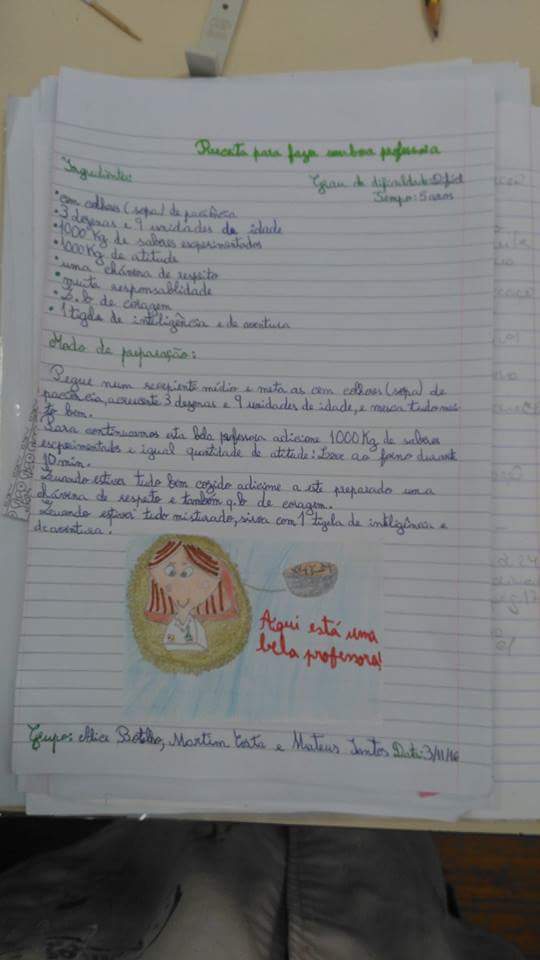 Receita para fazer uma boa professora
Ingredientes:
Grau de dificuldade: Difícil
Tempo: 5 anos
• cem colheres (sopa) de paciência
• 3 dezenas e 9 unidades de idade
• 1000 Kg de saberes experimentados
• 1000 Kg de atitude
• uma chávena de respeito
• muita responsablidade
• q.b de coragem
• 1 tigela de inteligência e de aventura
Modo de preparação:
Pegue num recepiente médio e meta as cem colheres (sopa) de
paciência, acrescente 3 dezenas e 9 unidades de idade, e mexa tudo mui-
to bem.
Para continuarmos esta bela professora adicione 1000 Kg de saberes
experimentados e igual quantidade de atitude: Leve ao forno durante
10 min.
Quando estiver tudo bem cozido adicione a este preparado uma
chávena de respeito e também q.b de coragem.
Quando estiver tudo misturado, sirva com 1 tigela de inteligência e
de aventura.
Aqui está uma
bela professora!
Grupo: Alice Botelho, Martim Costa e Mateus Santos Data: 3/11/16